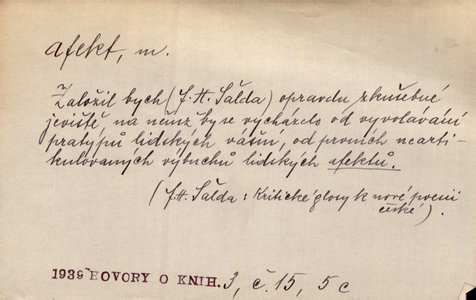 afekt, m.
Založil bych (F. X. Šalda) opravdu zkušebné
jeviště, na němž by se vycházelo od vyvolávání
pratypů lidských vášní, od prvních nearti-
kulovaných výbuchů lidských afektů.
(F. X. Šalda: Kritické glosy k nové poesii
české).
1939 HOVORY O KNIH. 3, č. 15, 5 c